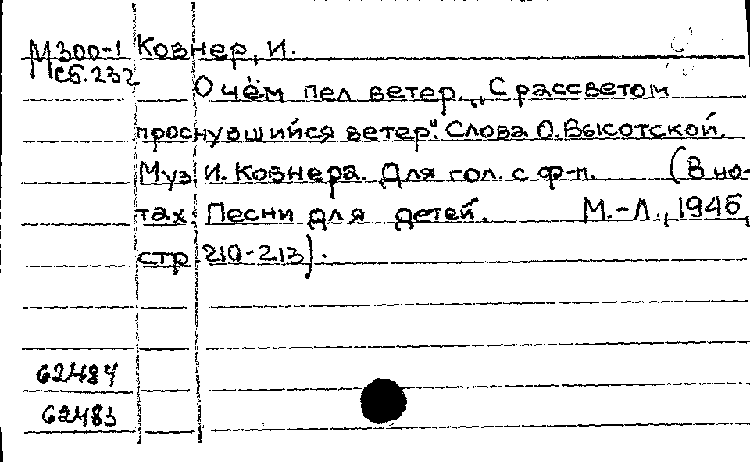 М300-1 Кознер, И.
Сб.232
О чём пел ветер. „С рассветом
проснувшийся ветер". Слова О.Высотской.
Муз И. Кознера. Для гол. с ф-п. (В но-
тах: Песни для детей. М.-Л., 1946,
стр 210-213).
62484
62483